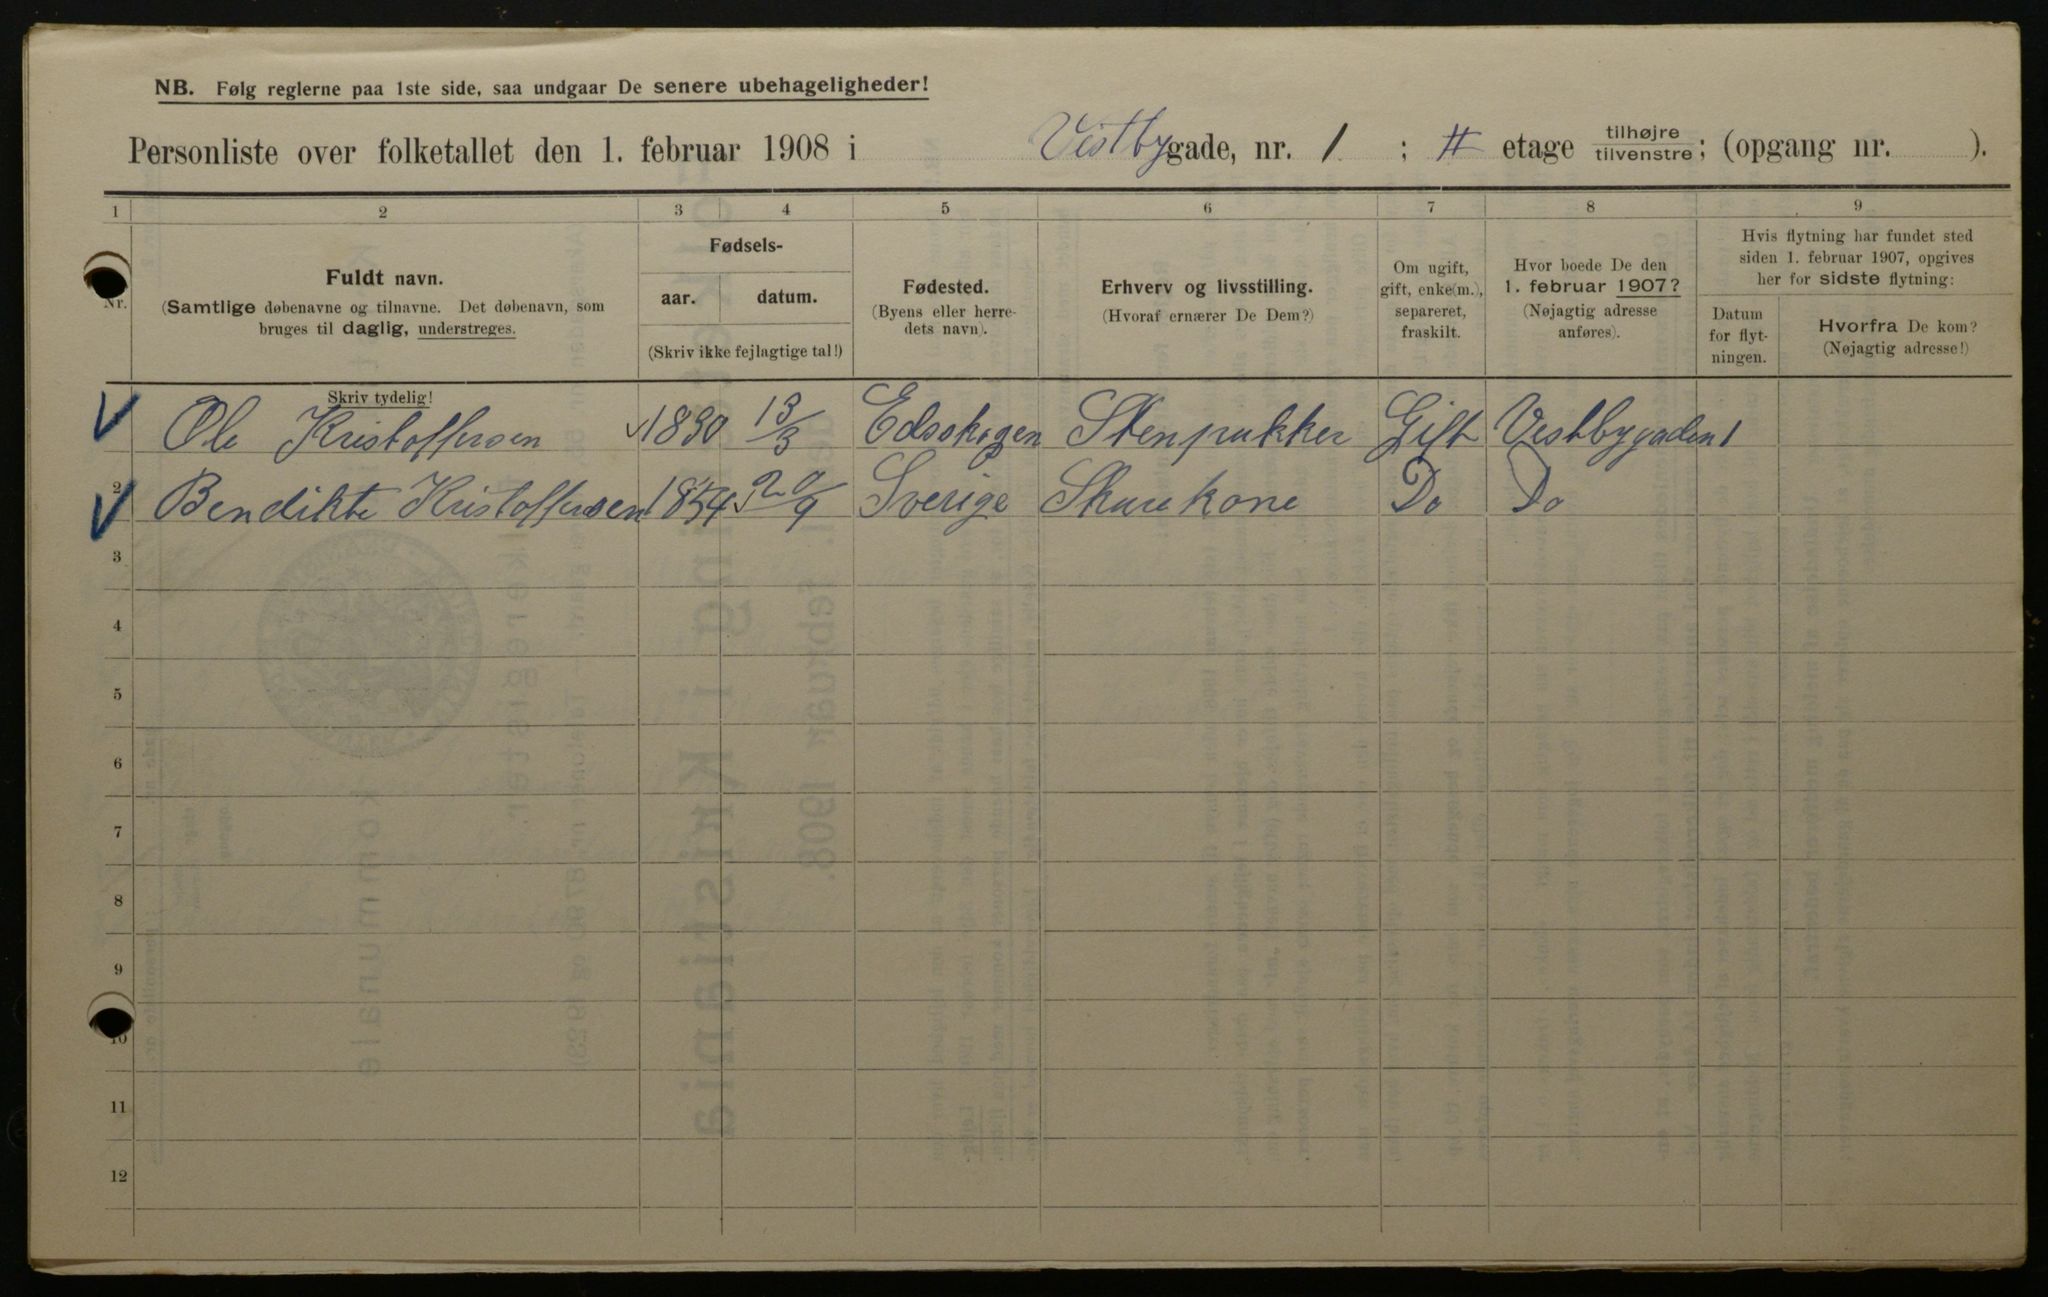 NB. Følg reglerne paa 1ste side, saa undgaar De senere ubehageligheder!
Personliste over folketallet den 1. februar 1908 i Vestbygade, nr. 1 ; II etage tilhøjre tilvenstre; (opgang nr. ).
1 2 3 4 5 6 7 8 9
Nr.
Fuldt navn.
(Samtlige døbenavne og tilnavne. Det døbenavn, som
bruges til daglig, understreges.
Fødsels-
aar. datum.
(Skriv ikke fejlagtige tal!)
Fødested.
(Byens eller herre-
dets navn).
Erhverv og livsstilling.
(Hvoraf ernærer De Dem?)
Om ugift,
gift, enke(m.),
separeret,
fraskilt.
Hvor boede De den
1. februar 1907?
(Nøjagtig adresse
anføres).
Hvis flytning har fundet sted
siden 1. februar 1907, opgives
her for sidste flytning:
Datum
for flyt-
ningen.
Hvorfra De kom?
(Nøjagtig adresse!)
Skriv tydelig!
Ole Kristoffersen 1830 13/3 Edsskogen Stenpukker Gift Vestbygaden 1
2 Bendikte Kristoffersen 1854 20/9 Sverige Do Do
3
4
5
6
7
8
9
10
11
12